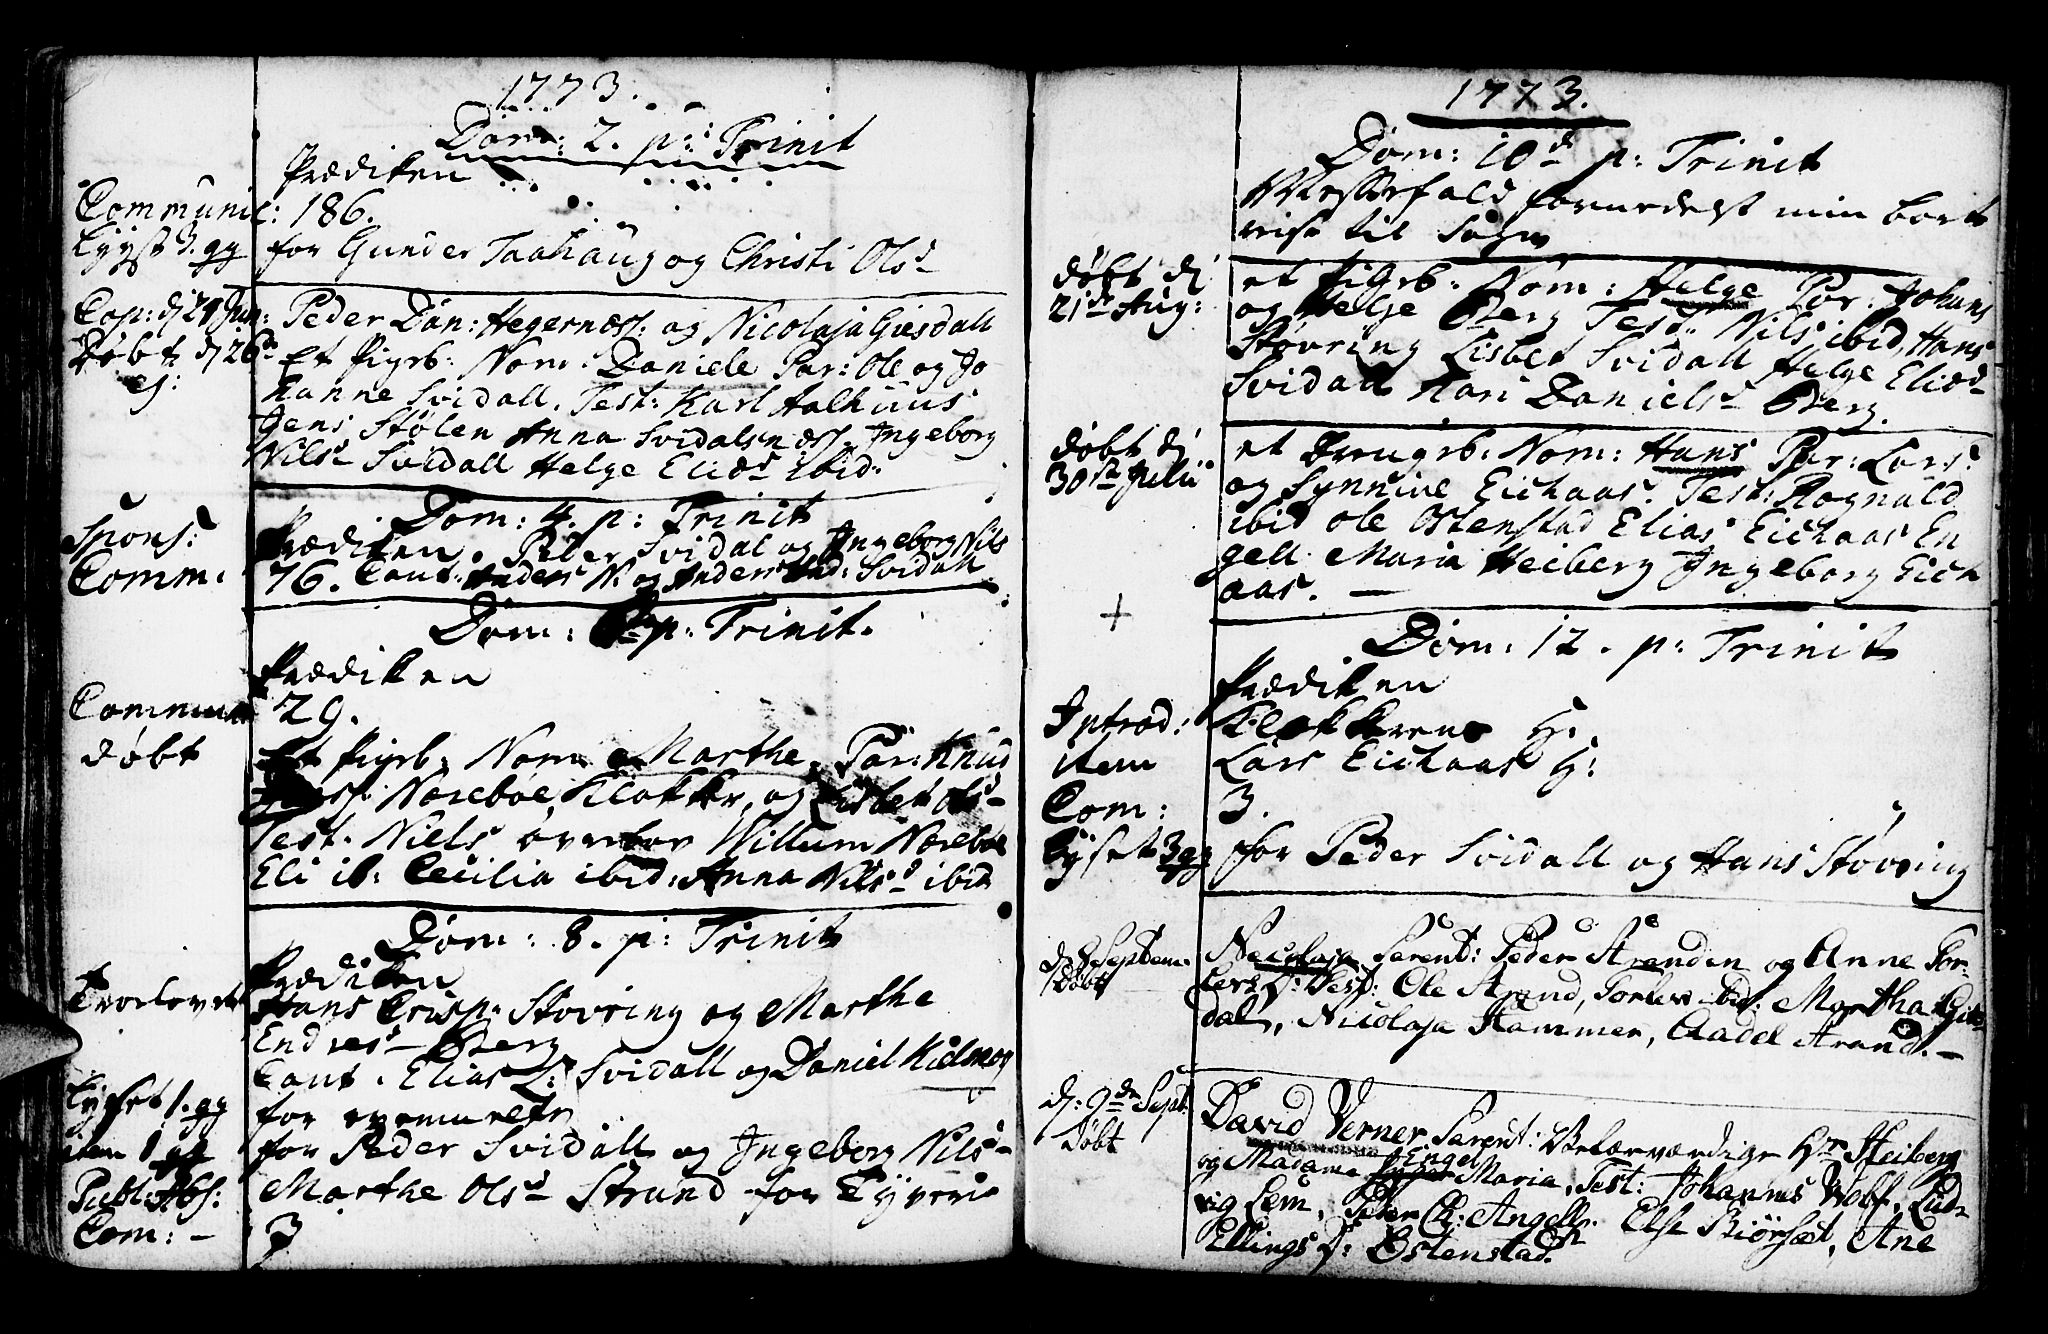 1773.
Dom: 2. p: Trinit
Prædiken
Communic: 186.
Lyyst 3. gg for Gunder Taahaug og Christi Olsd
Cop: dj 24 Jun: Peder Dan: Hegernæss. og Nicolaja Giesdall
Døbt dj 26de Et Pigeb: Nom. Daniele Par: Ole og Jo
ej: hanne Svidall. Test: Karl Aalhuus
Jens Stølen Anna Svidalsnæss. Ingeborg
Nilsd Svidall Helge Eliæd ibid.
Dom: 4. p: Trinit
Spons: Prædiken. Peder Svidal og Ingeborg Nils
Comm: 76. Caut: Anders N. og Anders And: Svidall
Dom: p: Trinit.
Prædiken
Commun 29.
døbt Et Pigeb: Nom. Marthe. Par: Knud
Nærebøe, Klokker, og Lisbet Olsd
Test: Niels Øvrebøe Willum Nærebøe
Eli ib: Cecilia ibid: Anna Nilsd ibid
Dom: 8. p: Trinit
Prædiken
Trolovet Hans Crisp: Støvring og Marthe
Endresd Berg
Caut. Elias L: Svidall og Daniel Kielnæs
Lyset 1. gg for
item 1 gg for Peder Svidall og Ingeborg Nilsd
Publ: Abs: Marthe Olsd Strand for Tyverie
Com: - 3
1773.
Dom: 10d p: Trinit
Messefald formedelst min bort
reise til Sogn
døbt dj et Pigeb. Nom: Helge Par: Johans
21de Aug: og Helge Berg Test: Nils ibid, Hans
Støvring Lisbet Svidall Helge Eliæd
Svidall Kari Danielsd Berg.
døbt dj et Drengeb: Nom: Hans Par: Lars
30te Julii og Synnive Eichaas. Test: Rognald
ibid Ole Ostenstad Elias Eichaas En
gell Maria Heiberg Ingeborg Eich
aas. —
+
Dom: 12. p: Trinit
Prædiken
Introd: Klokkerens H:
item Lars Eichaas H:
Com: 3.
Lyset 3 gg for Peder Svidall og Hans Støvring
d: 8 Septem. Nicolaja Parent: Peder Aranden og Anne Tor-
Døbt lers D: Test: Ole Arand, Torlev ibid: Martha Gies
dal, Nicolaja Hammer, Aadel Arand. —
d: 9de Sept. David Verner. Parent: Velærværdige Hr Heiberg
Døbt og Madame Engel Maria, Test: Johannes Wolf, Lud-
vig Lem, Peter Ch: Angell. Else Riørsæt, Ane
Ellings D: Østenstad.